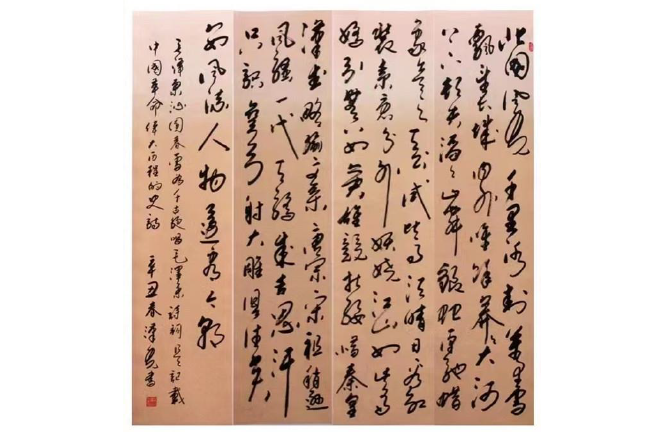 北国风光千里冰封万里雪
飘望长城内外惟馀莽莽大河
上下顿失滔滔山舞银蛇原驰蜡
象欲与天公试比高须晴日看红
装素裹分外妖娆江山如此多
娇引无数英雄竞折腰惜秦皇
汉武略输文采唐宗宋祖稍逊
风骚一代天骄成吉思汗
只识弯弓射大雕俱往矣
数风流人物还看今朝
毛泽东沁园春雪为千古绝唱毛泽东诗词是记载
中国革命伟大历程的史诗 辛丑春泽书